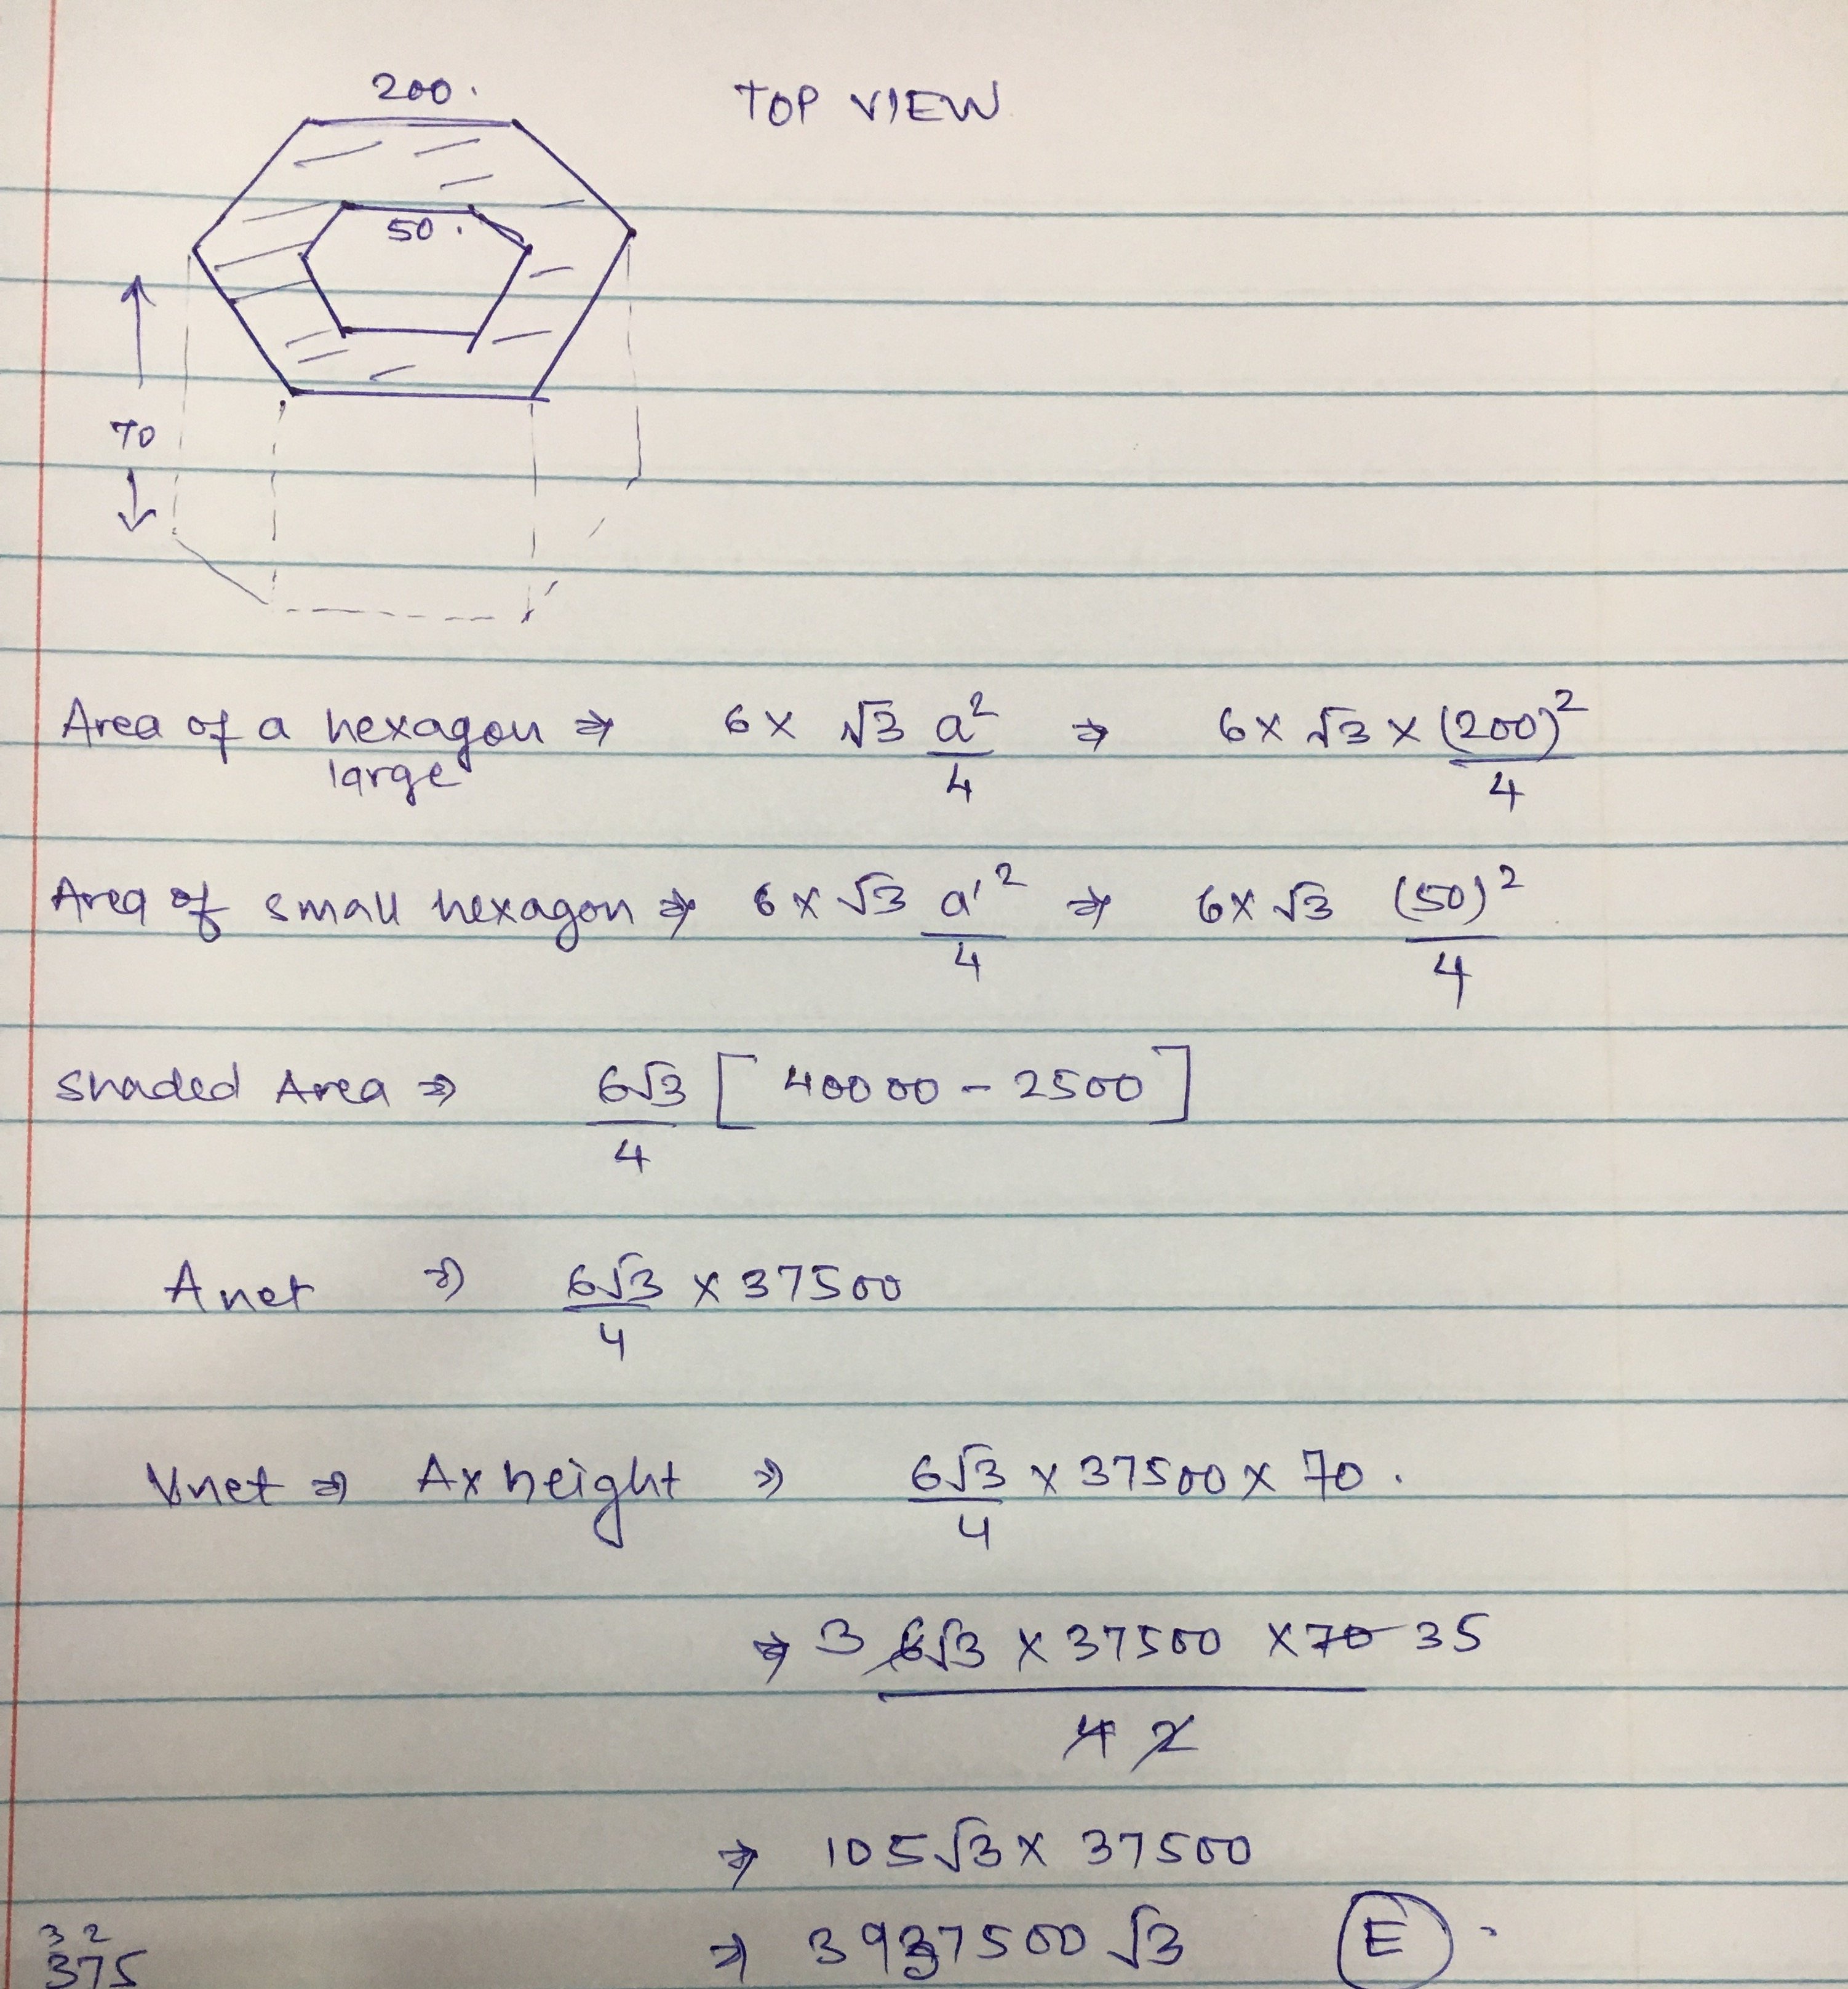 200.
TOP VIEW
50.
70
Area of a hexagon ⇒ 6 × √3 a²/4 ⇒ 6 × √3 × (200)²/4
large
Area of small hexagon ⇒ 6 × √3 a'²/4 ⇒ 6 × √3 (50)²/4
Shaded Area ⇒ 6√3/4 [40000 - 2500]
Anet ⇒ 6√3/4 × 37500
Vnet ⇒ A × height ⇒ 6√3/4 × 37500 × 70.
⇒ 3 6√3 × 37500 × 70 35 / 4 2
⇒ 105√3 × 37500
⇒ 3937500 √3 E
3 2
375